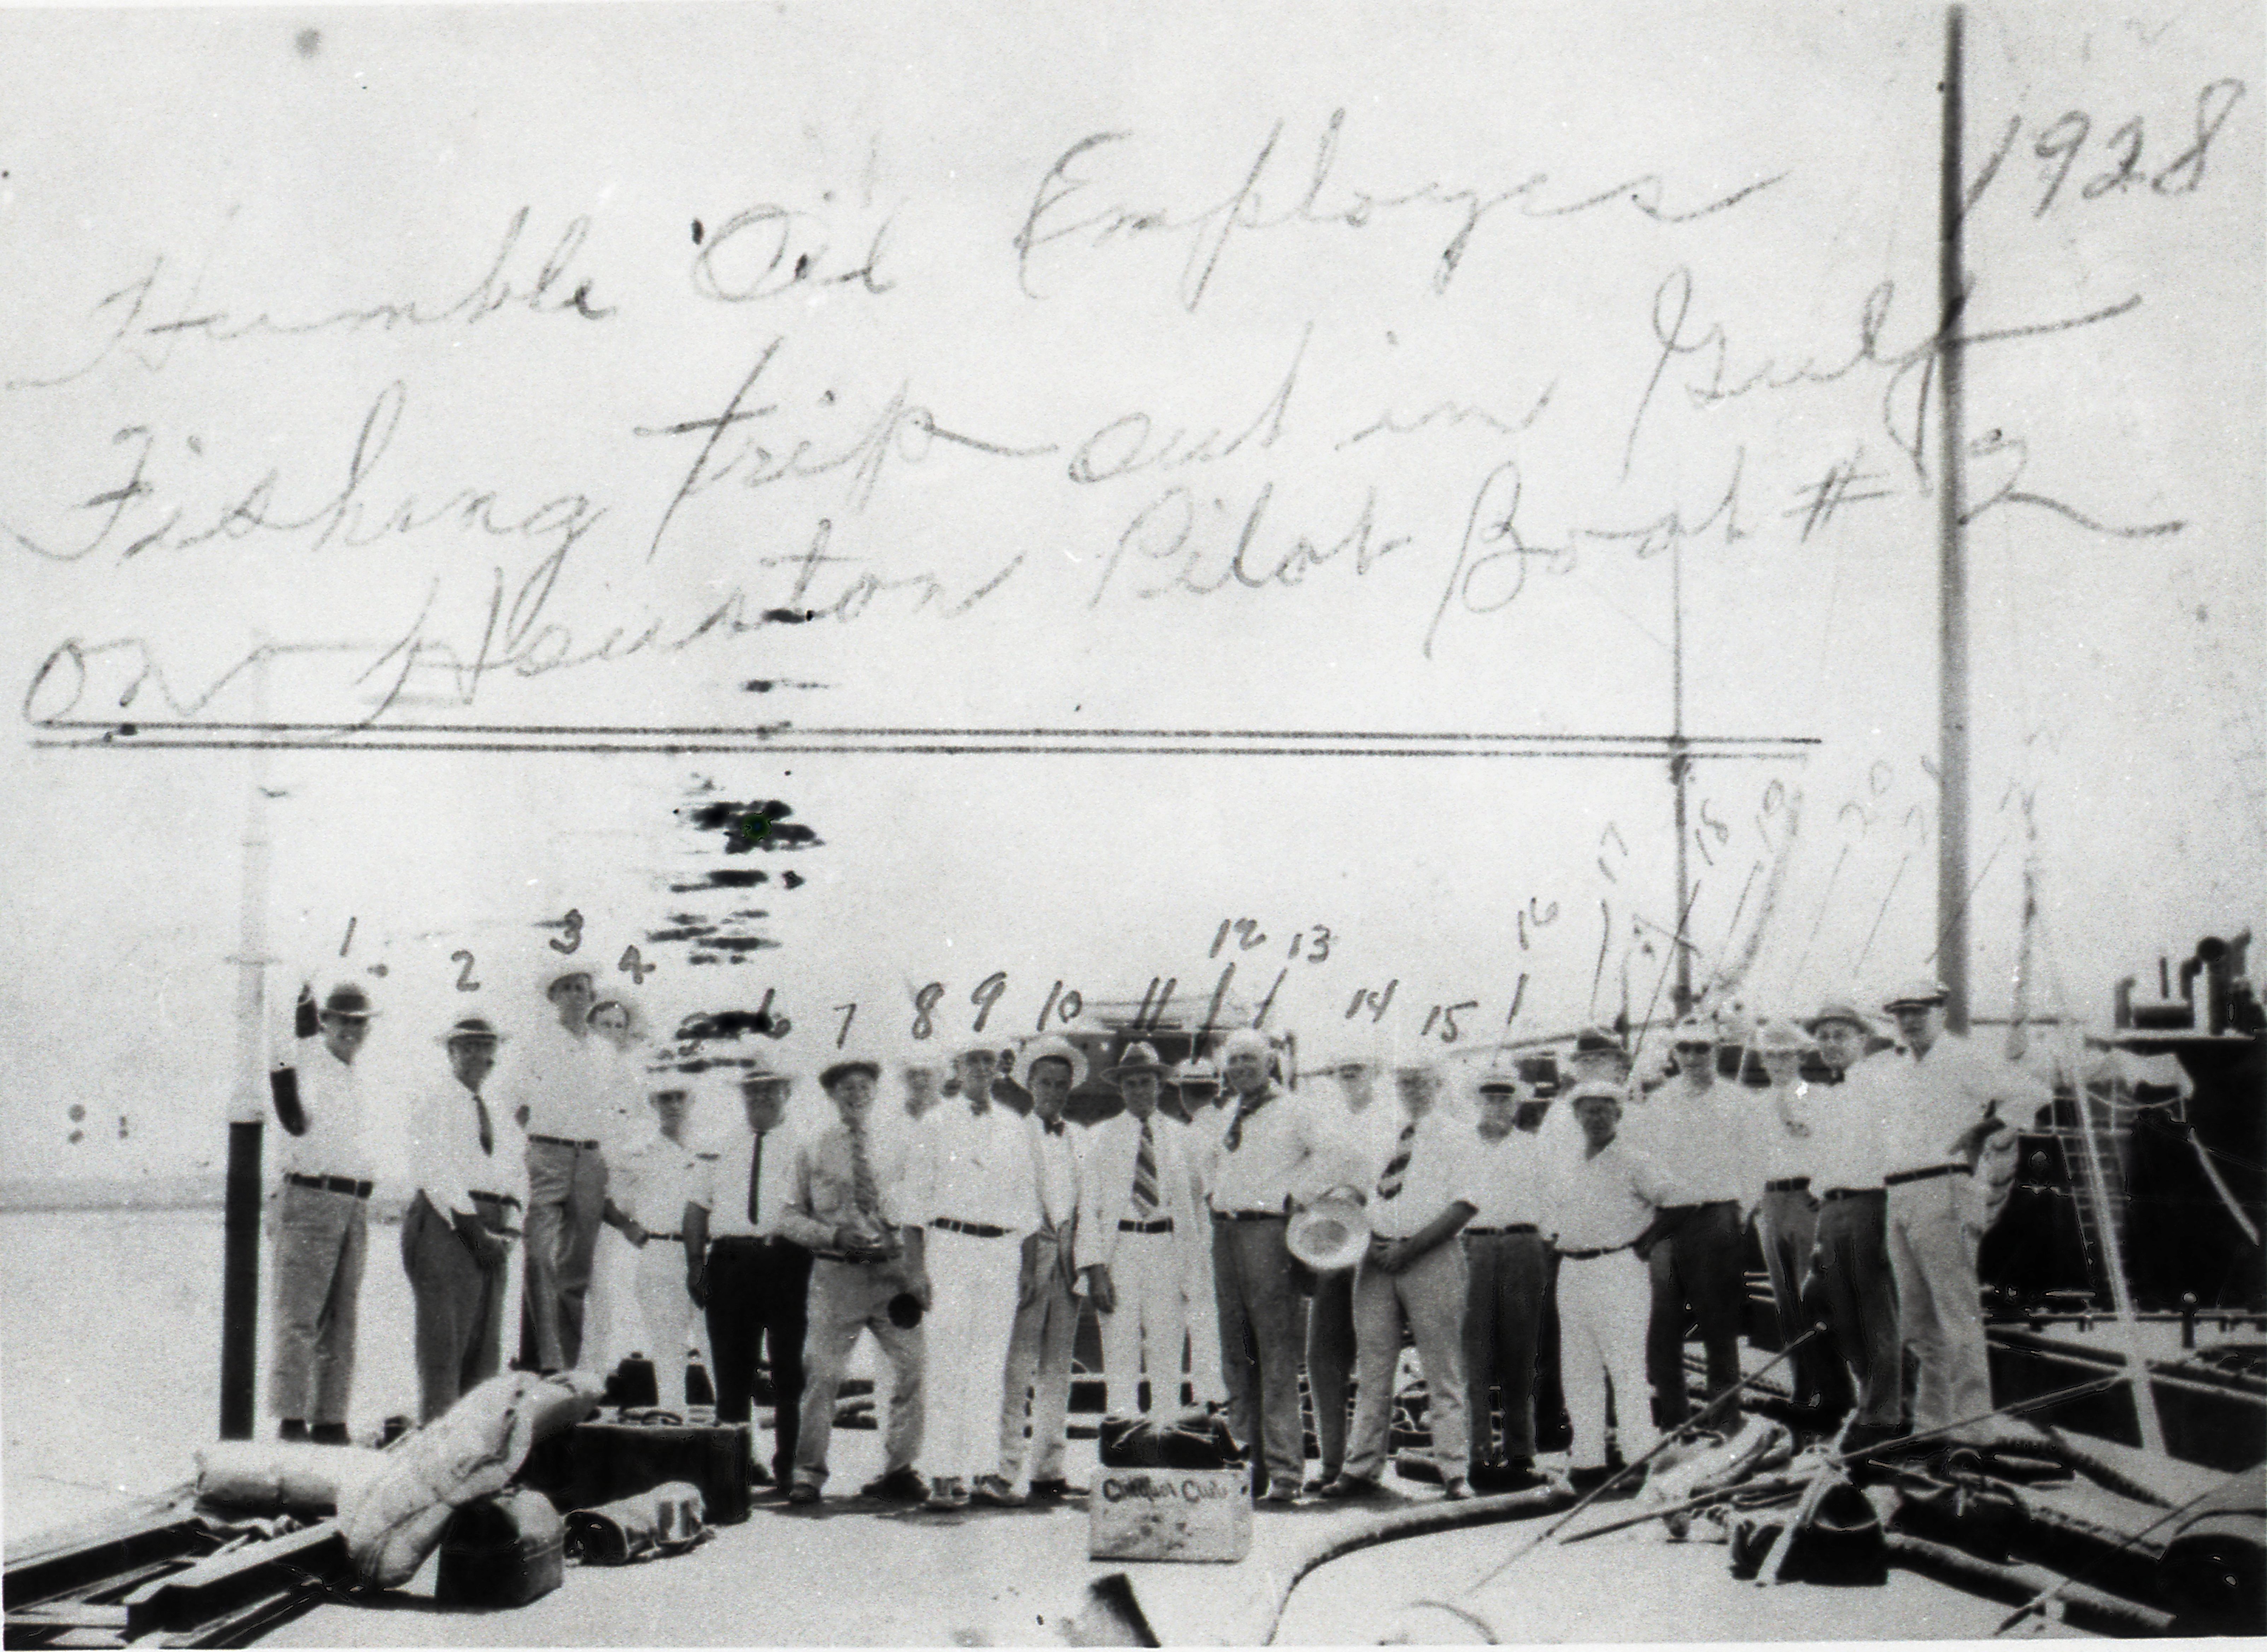 Humble Oil Employes 1928
Fishing trip out in Gulf
on Houston Pilot Boat # 2
1 2 3 4 6 7 8 9 10 11 12 13 14 15 16 17 18 19 20
Club